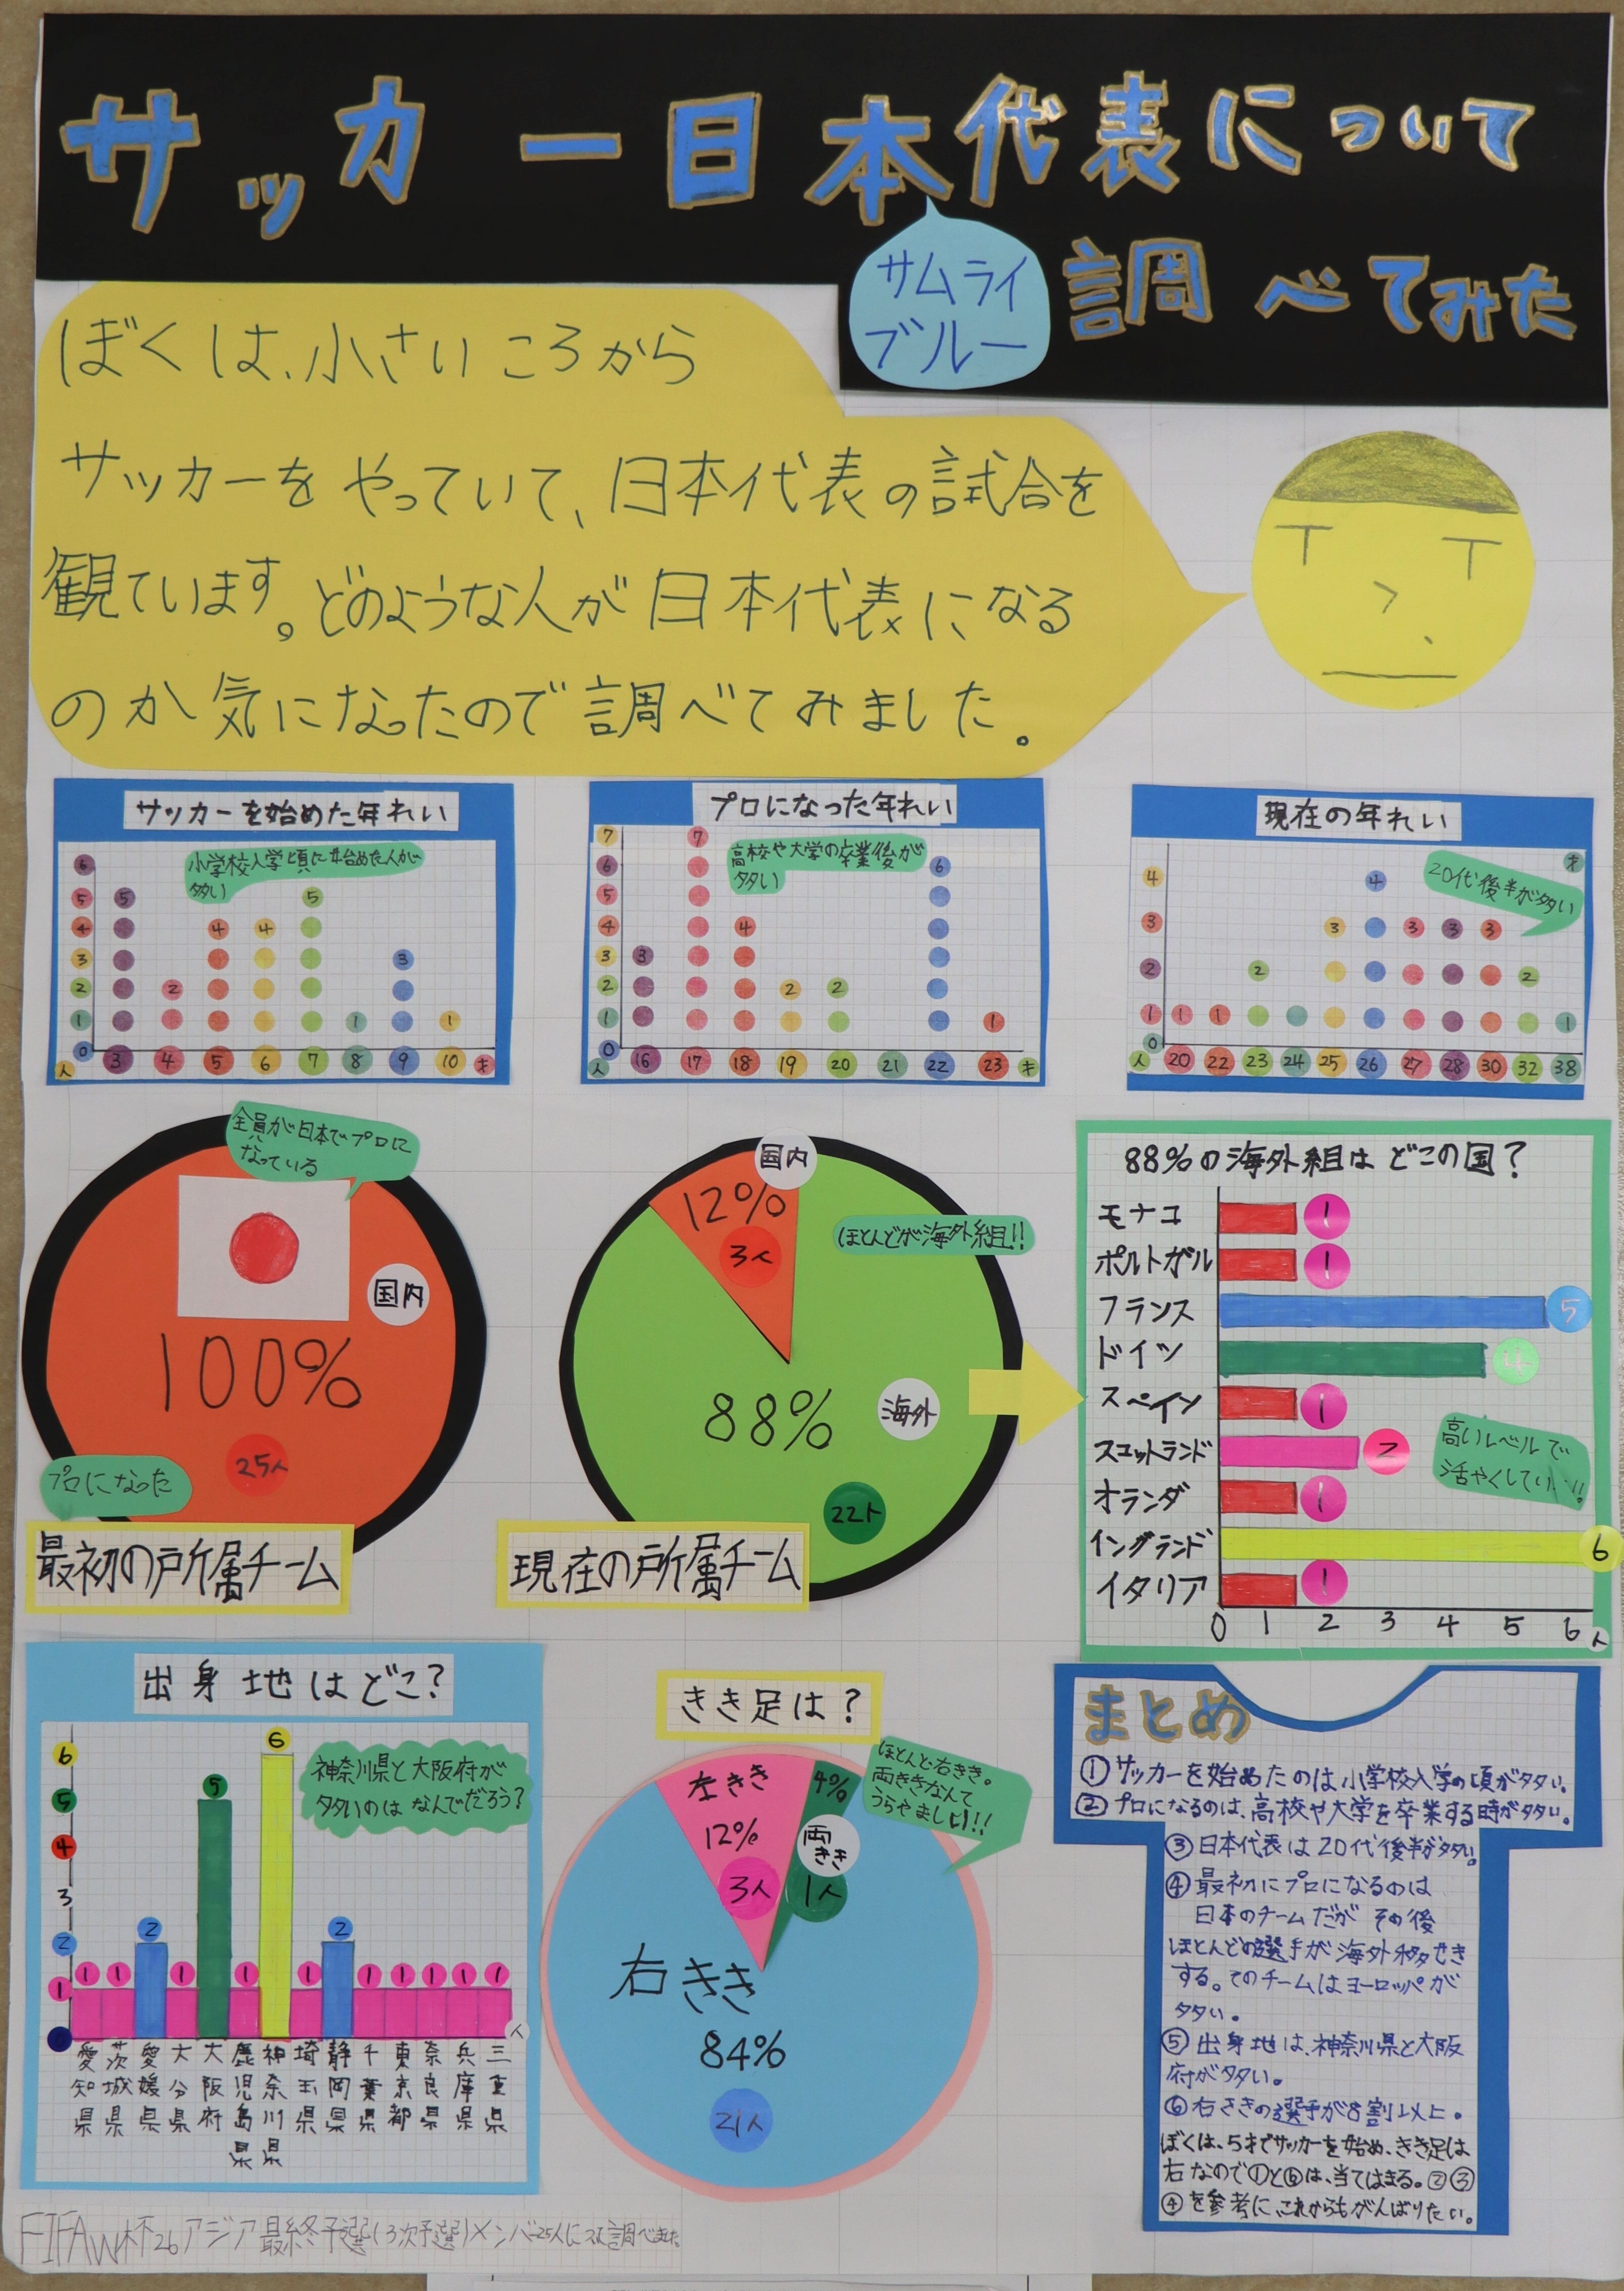 サッカー日本代表について
調べてみた
サムライ
ブルー
ぼくは、小さいころから
サッカーをやっていて、日本代表の試合を
観ています。どのような人が日本代表になる
のか気になったので調べてみました。
サッカーを始めた年れい
小学校入学頃に始めた人が
多い
6
5 5 5
4 4 4
3 3
2 2
1 1 1
0
人 3 4 5 6 7 8 9 10 才
プロになった年れい
高校や大学の卒業後が
多い
7 7
6 6
5
4 4
3 3
2 2 2
1 1
0
人 16 17 18 19 20 21 22 23 才
現在の年れい
20代後半が多い
才
4 4
3 3 3 3 3
2 2 2
1 1 1 1
0
人 20 22 23 24 25 26 27 28 30 32 38
全員が日本でプロに
なっている
国内
100%
25人
プロになった
最初の所属チーム
国内
12%
3人
ほとんどが海外組!!
88%
海外
22人
現在の所属チーム
88%の海外組はどこの国?
モナコ 1
ポルトガル 1
フランス 5
ドイツ 4
スペイン 1
スコットランド 2
オランダ 1
イングランド 6
イタリア 1
0 1 2 3 4 5 6 人
高いレベルで
出身地はどこ?
神奈川県と大阪府が
多いのはなんでだろう?
6 6
5 5
4
3
2 2 2
1 1 1 1 1 1 1 1 1 1 1
0
人
愛知県
茨城県
愛媛県
大分県
大阪府
鹿児島県
神奈川県
埼玉県
静岡県
千葉県
東京都
奈良県
兵庫県
三重県
きき足は?
左きき
12%
3人
4%
両きき
1人
ほとんど右きき。
両ききなんて
うらやましい!!
右きき
84%
21人
まとめ
①サッカーを始めたのは小学校入学の頃が多い。
②プロになるのは、高校や大学を卒業する時が多い。
③日本代表は20代後半が多い。
④最初にプロになるのは
日本のチームだがその後
ほとんどの選手が海外移せき
する。そのチームはヨーロッパが
多い。
⑤出身地は、神奈川県と大阪
府が多い。
⑥右ききの選手が8割以上。
ぼくは、5才でサッカーを始め、きき足は
右なので①と⑥は、当てはまる。②③
④を参考に、これからもがんばりたい。
FIFAW杯26アジア最終予選(3次予選)メンバー25人について調べました。